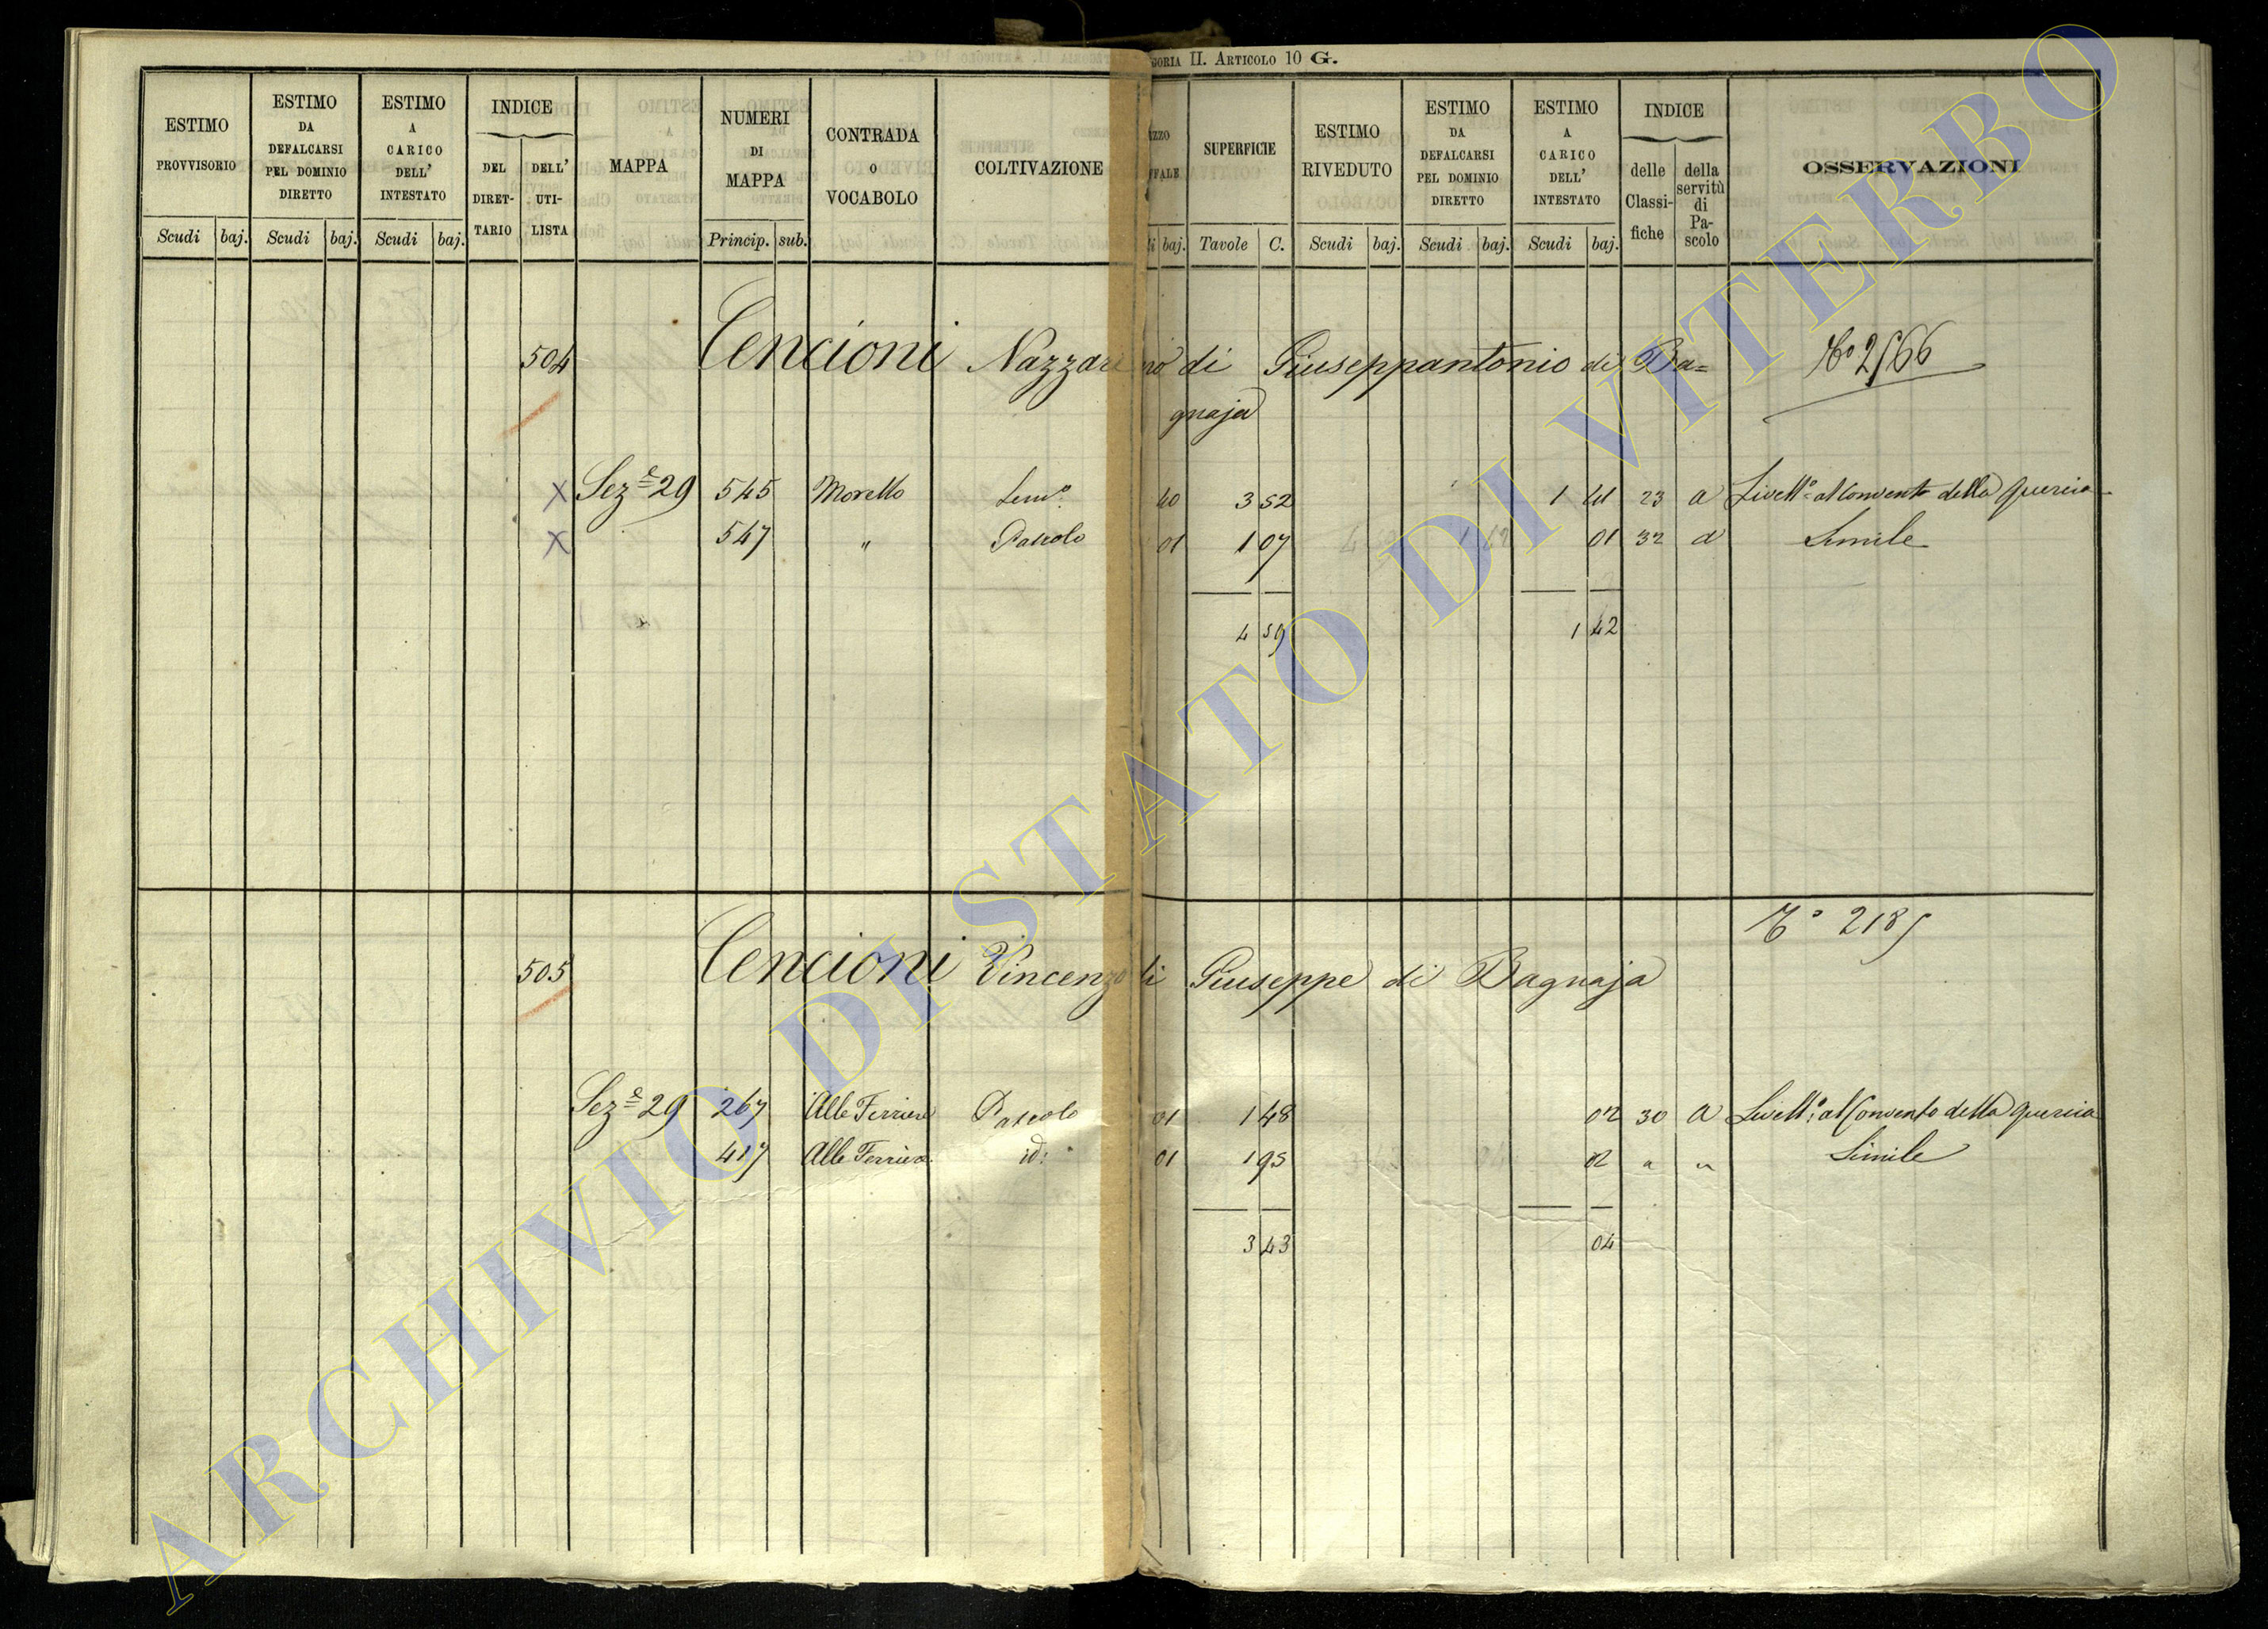 GORIA II. ARTICOLO 10 G.
ESTIMO PROVVISORIO
Scudi baj.
ESTIMO DA DEFALCARSI PEL DOMINIO DIRETTO
Scudi baj.
ESTIMO A CARICO DELL' INTESTATO
Scudi baj.
INDICE
DEL DIRET-TARIO
DELL' UTI-LISTA
MAPPA
NUMERI DI MAPPA
Princip. sub.
CONTRADA O VOCABOLO
COLTIVAZIONE
baj.
SUPERFICIE
Tavole C.
ESTIMO RIVEDUTO
Scudi baj.
ESTIMO DA DEFALCARSI PEL DOMINIO DIRETTO
Scudi baj.
ESTIMO A CARICO DELL' INTESTATO
Scudi baj.
INDICE
delle Classi-fiche
della servitù di Pa-scolo
OSSERVAZIONI
504 Cencioni Nazzareno di Giuseppantonio di Ba=
gnaja
X Sez.e 29 545 Morello Sem.o 40 3 52 1 41 23 a Livell.o al Convento della Quercia
X 547 " Pascolo 01 1 07 01 32 a Simile
4 59 1 42
2185
505 Cencioni Vincenzo di Giuseppe di Bagnaja
Sez.e 29 267 Alle Ferriere Pascolo 01 1 48 02 30 a Livell.o al Convento della Quercia
417 Alle Ferriere id: 01 1 95 02 " " Simile
3 43 04
ARCHIVIO DI STATO DI VITERBO